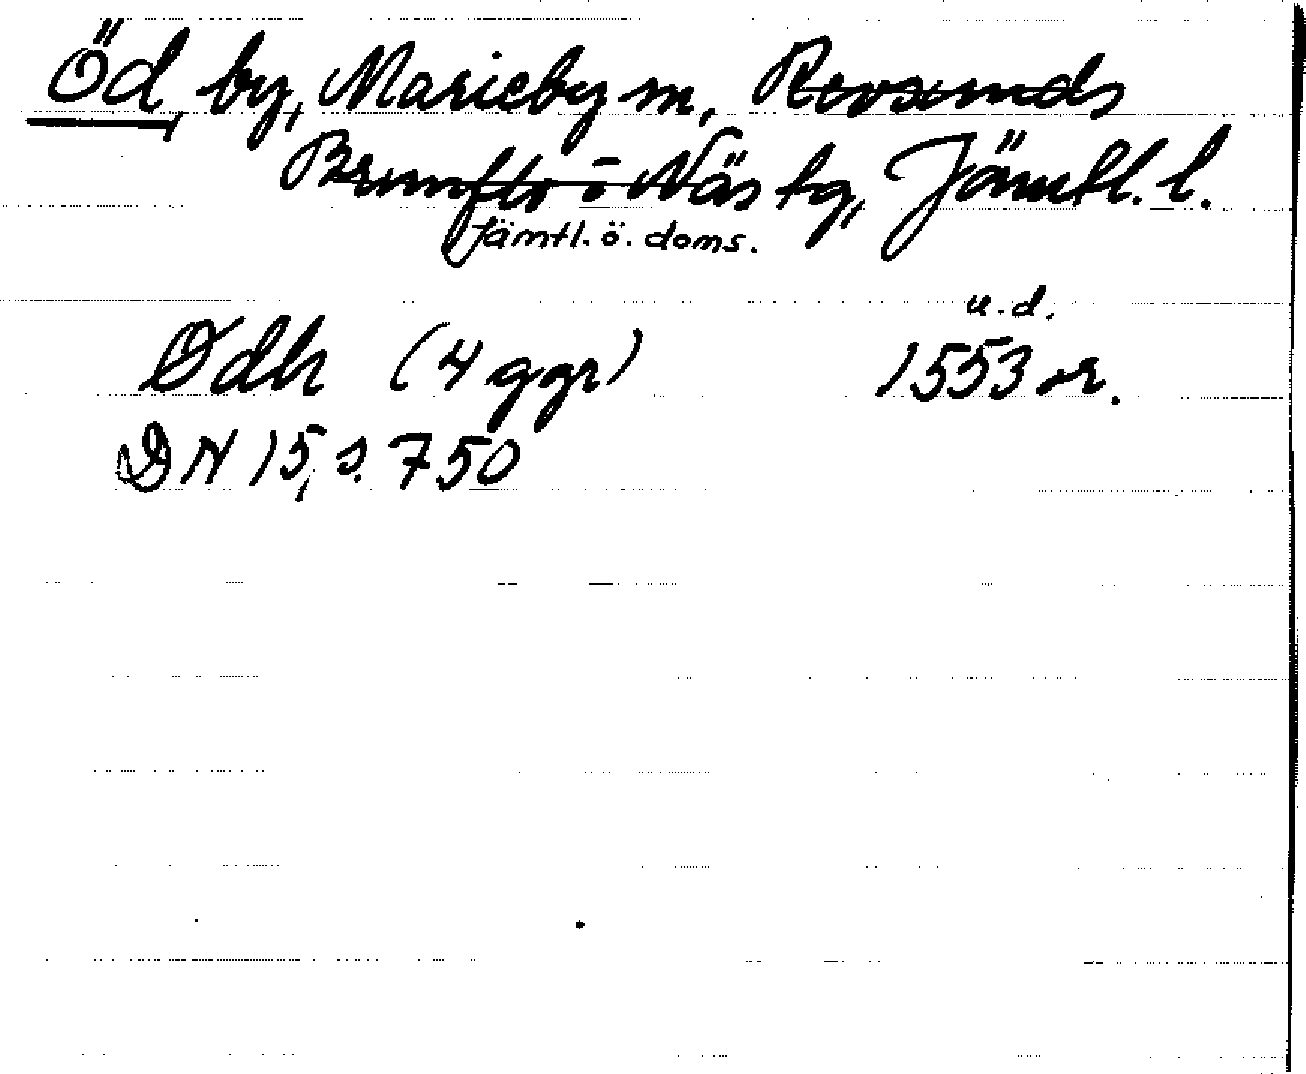 Öd by, Marieby sn, Revsunds
Brunflo o Näs tg, Jämtl. l.
Jämtl. ö. doms.
u. d.
Ödh (4 ggr) 1553 or.
DN 15, s. 750